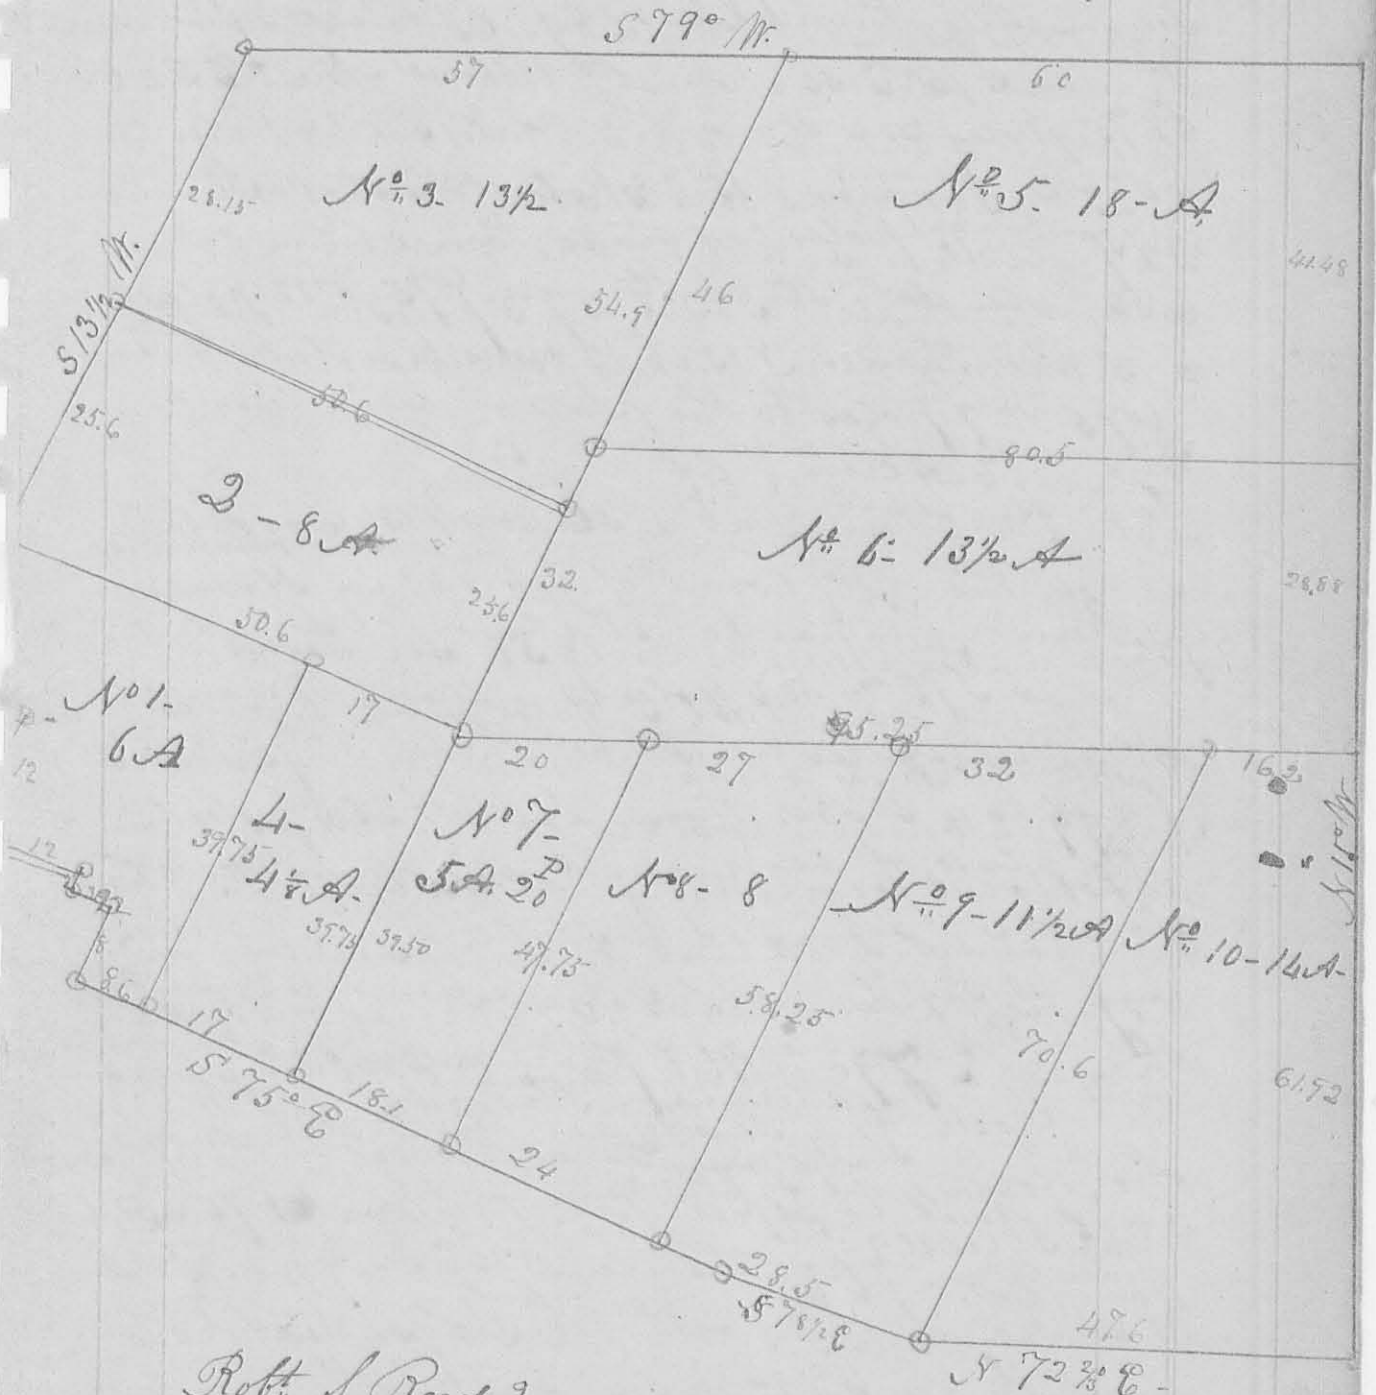 S 79° W.
57
60
28.15
No 3- 13½
No 5- 18-A
41.48
54.9
46
S 13½ W.
50.6
25.6
80.5
2 - 8 A
No 6- 13½ A
28.88
32
25.6
50.6
17
No 1-
6 A
12
20
27
95.25
32
16.2
39.75
4-
4⅛ A-
No 7-
5 A. 20 P
No 8- 8
No 9-11½ A
No 10-14 A-
N 15° W
12
39.75
39.50
47.75
58.25
8
86
17
S 75° E
18.1
70.6
61.92
24
28.5
S 78½ E
47.6
N 72 ⅔° E
Robt.